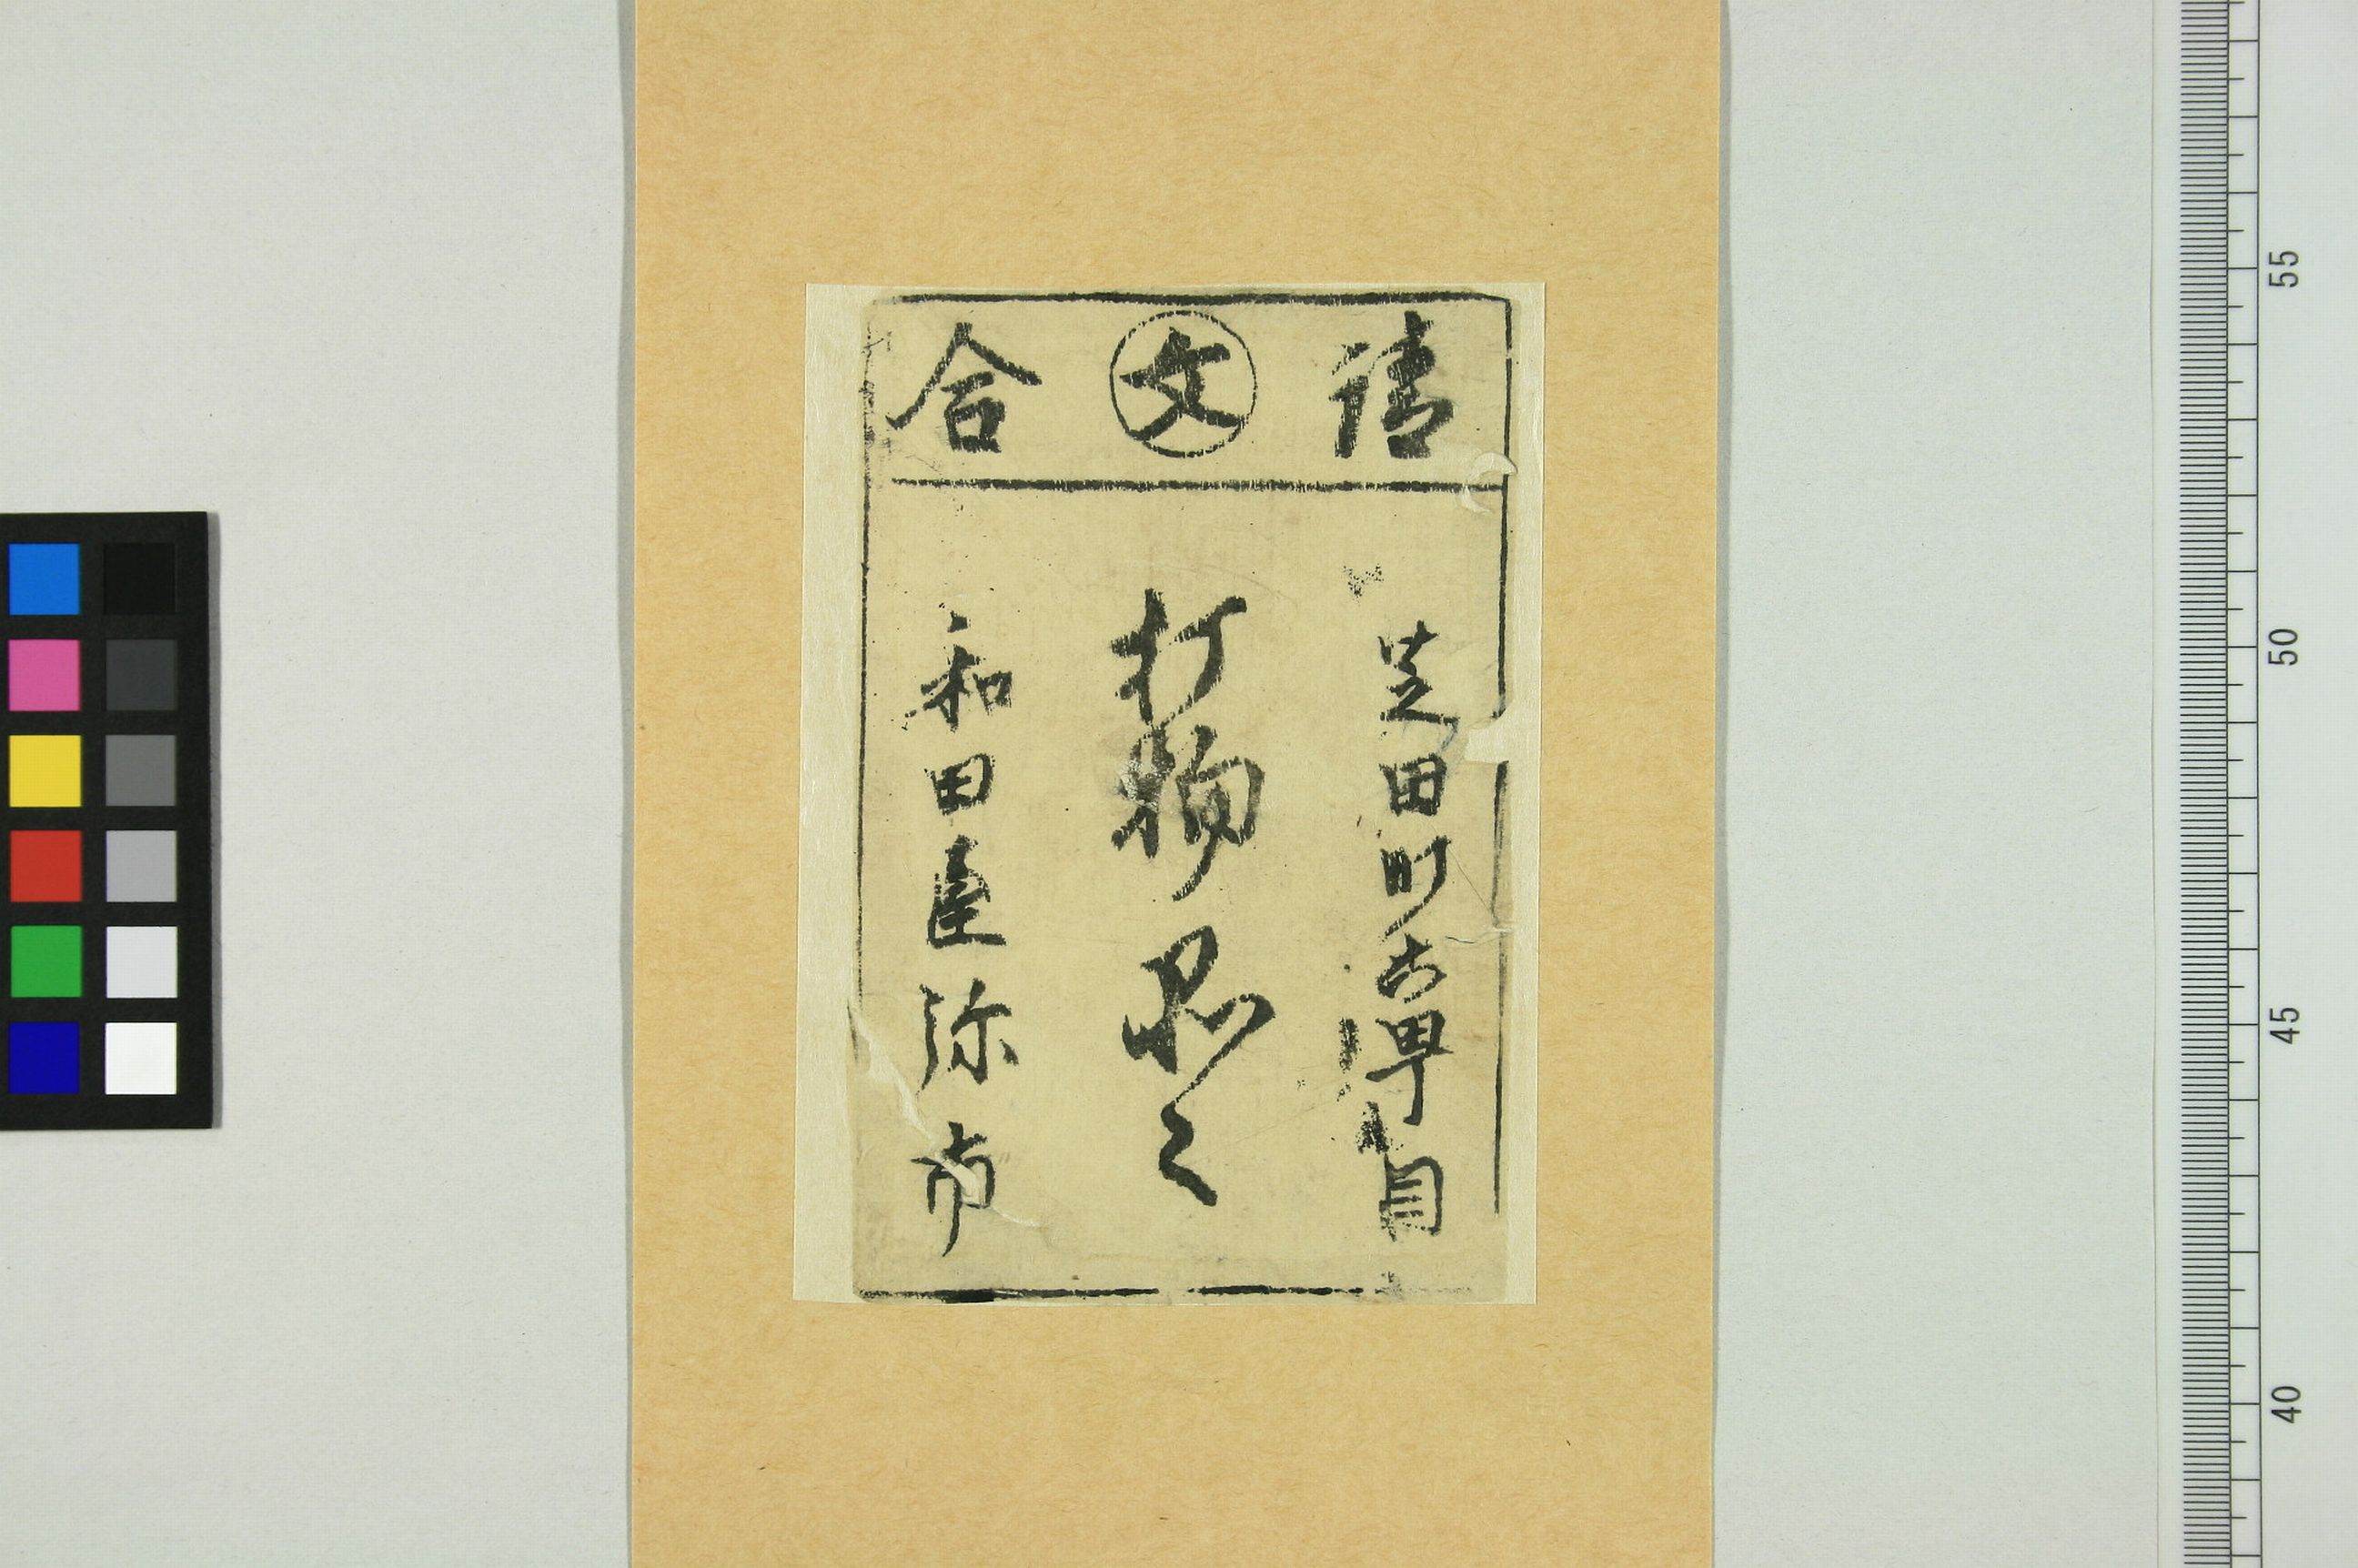 請 文 合
芝田町甼目
打物品々
和田屋弥市
55
50
45
40